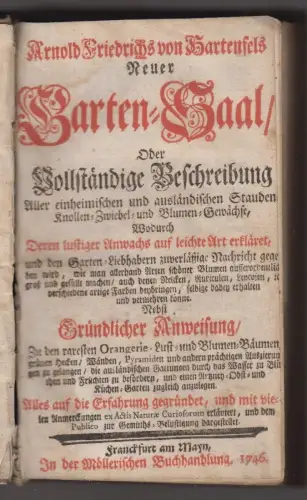 Arnold Friedrichs von Hartenfels
Neuer
Garten-Saal/
Oder
Vollständige Beschreibung
Aller einheimischen und ausländischen Stauden
Knollen-Zwiebel- und Blumen-Gewächse,
Wodurch
Deren lustiger Anwachs auf leichte Art erkläret,
und den Garten-Liebhabern zuverläßige Nachricht gege
ben wird, wie man allerhand Arten schöner Blumen ausserordentlich
groß und gefüllt machen, auch denen Nelcken, Auriculen, Levcojen,
verschiedene artige Farben beybringen, selbige dabey erhalten
und vermehren könne.
Nebst
Gründlicher Anweisung/
Zu den raresten Orangerie-Lust- und Blumen-Bäumen
grünen Hecken, Wänden, Pyramiden und andern prächtigen Aufzierun
gen zu gelangen/ die ausländischen Baumen durch das Wasser zu
chen und Früchten zu befördern, und einen Artzney-Obst- und
Küchen-Garten zugleich anzulegen.
Alles auf die Erfahrung gegründet, und mit vie-
len Anmerckungen ex Actis Naturæ Curiosorum erläutert, und dem
Publico zur Gemüths-Belustigung dargestellet.
Franckfurt am Mayn,
In der Möllerischen Buchhandlung, 1746.